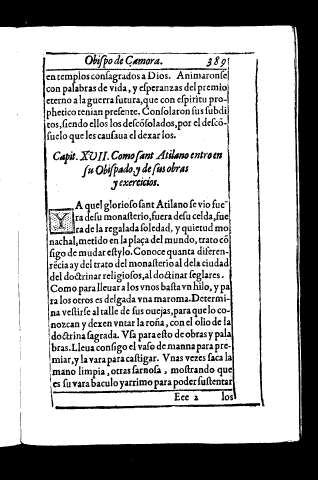 Obispo de Çamora. 389
en templos consagrados a Dios. Animaronse
con palabras de vida, y esperanzas del premio
eterno a la guerra futura, que con espiritu pro-
phetico tenian presente. Consolaron sus subdi
tos, siendo ellos los descõsolados, por el descõ-
suelo que les causaua el dexar los.
Capit. XVII. Como sant Atilano entro en
su Obispado, y de sus obras
y exercicios.
YA quel glorioso sant Atilano se vio fue
ra de su monasterio, fuera de su celda, fue
ra de la regalada soledad, y quietud mo
nachal, metido en la plaça del mundo, trato cõ
sigo de mudar estylo. Conoce quanta diferen-
rẽcia ay del trato del monasterio al de la ciudad
del doctrinar religiosos, al doctinar seglares.
Como para lleuar a los vnos basta vn hilo, y pa
ra los otros es delgada vna maroma. Determi-
na vestirse al talle de sus ouejas, para que lo co-
nozcan y dexen vntar la roña, con el olio de la
doctrina sagrada. Vsa para esto de obras y pala
bras. Lleua consigo el vaso de manna para pre-
miar, y la vara para castigar. Vnas vezes saca la
mano limpia, otras sarnosa, mostrando que
es su vara baculo y arrimo para poder sustentar
Eee 2 los